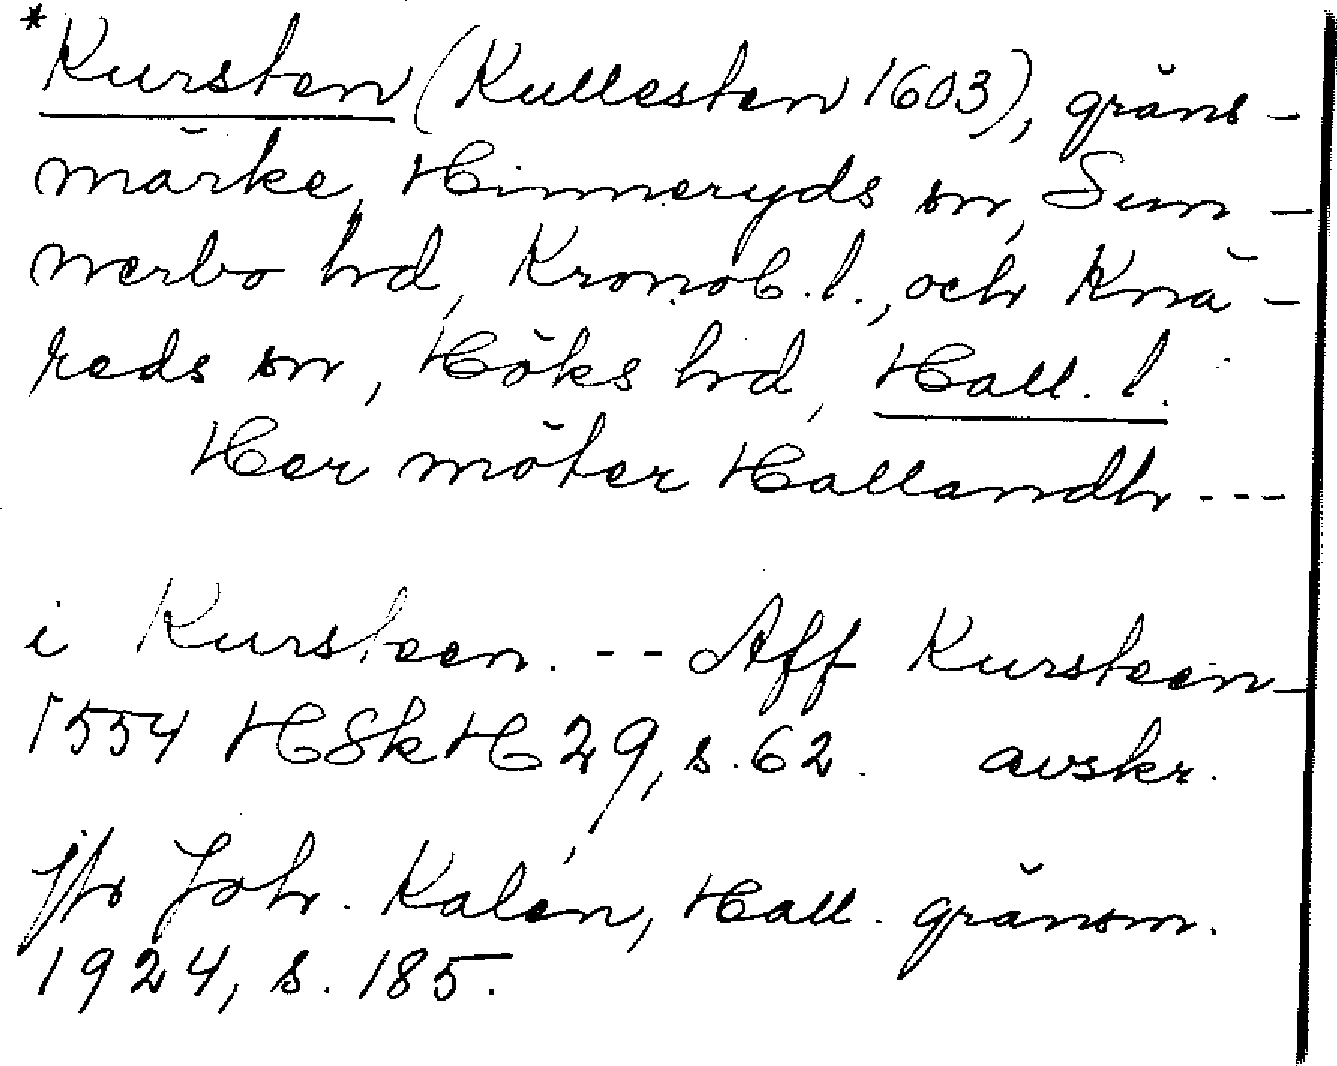 *Kursten (Kullesten 1603), gräns-
märke, Hinneryds sn, Sun-
nerbo hd, Kronob. l., och Knä-
reds sn, Höks hd, Hall. l.
Her möter Hallandh ---
i Kursteen. -- Aff Kursteen
1554 HSkH 29, s. 62. avskr.
jfr Joh. Kalén, Hall. gränsm.
1924, s. 185.